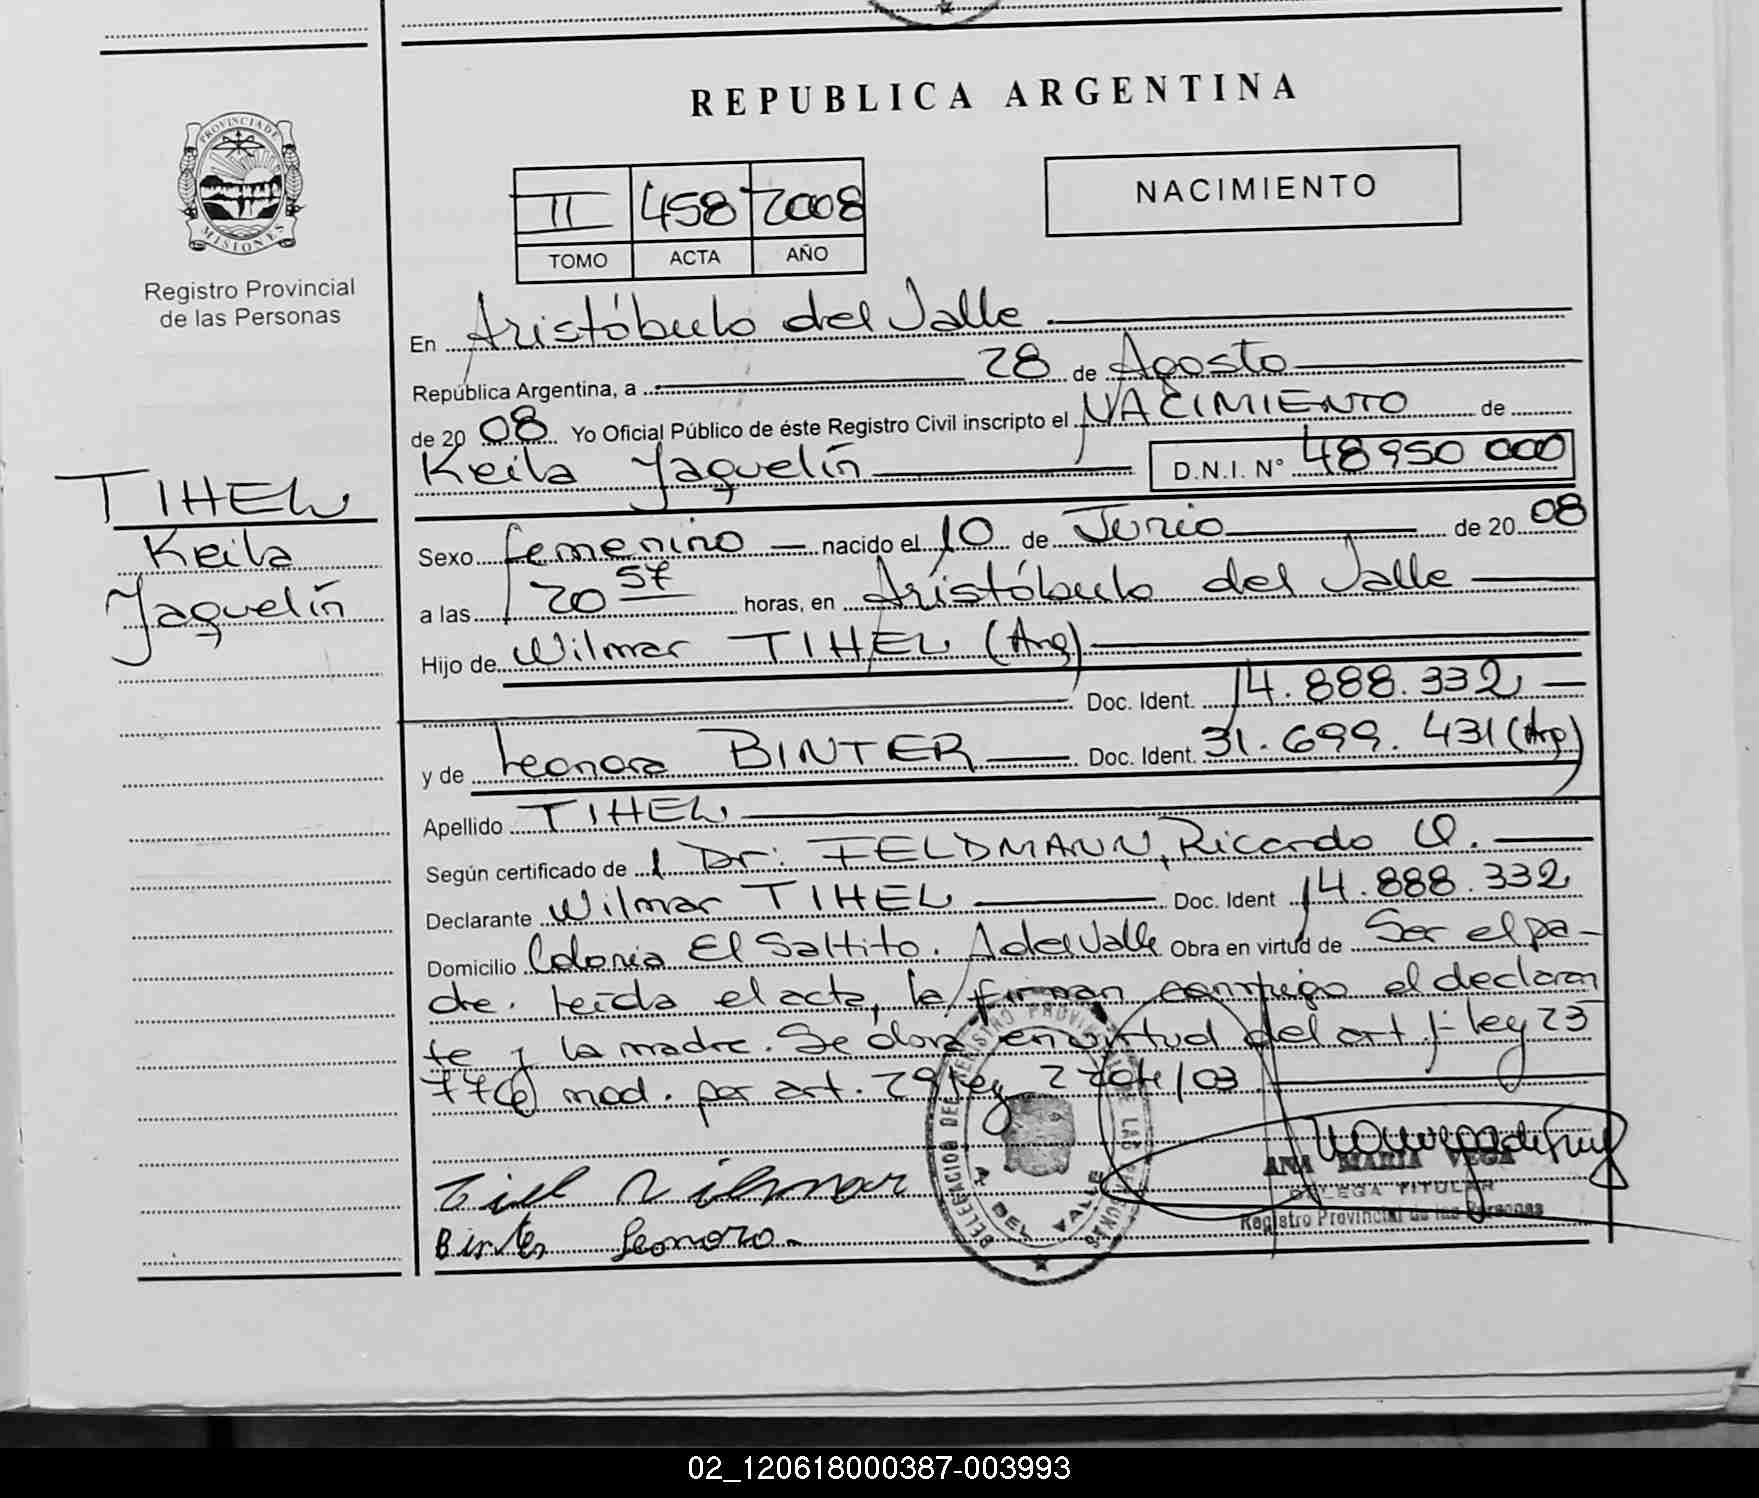 REPUBLICA ARGENTINA
PROVINCIA DE
MISIONES
Registro Provincial
de las Personas
II 458 2008
TOMO ACTA AÑO
NACIMIENTO
En Aristóbulo del Valle
República Argentina, a 28 de Agosto
de 20 08 Yo Oficial Público de éste Registro Civil inscripto el NACIMIENTO de
Keila Jaquelín D.N.I. N° 48950 000
TIHEL
Keila
Jaquelín
Sexo femenino nacido el 10 de Junio de 20 08
a las 20 57 horas, en Aristóbulo del Valle
Hijo de Wilmar TIHEL (Arg)
Doc. Ident. 14.888.332
y de Leonora BINTER Doc. Ident. 31.699.431 (Arg)
Apellido TIHEL
Según certificado de Dr: FELDMANN, Ricardo O.
Declarante Wilmar TIHEL Doc. Ident 14.888.332
Domicilio Colonia El Saltito. A del Valle Obra en virtud de Ser el pa-
dre. Leída el acta, la firman conmigo el declaran
te y la madre. Se dona en virtud del art 1- ley 23
776 mod. por art. 29 ley 2704/03
Tiel Wilmar
Binter Leonora
DELEGACION DEL REGISTRO PROVINCIAL DE LAS PERSONAS
A DEL VALLE
ANA MARIA VEGA
DELEGA TITULAR
Registro Provincial de las Personas
02_120618000387-003993